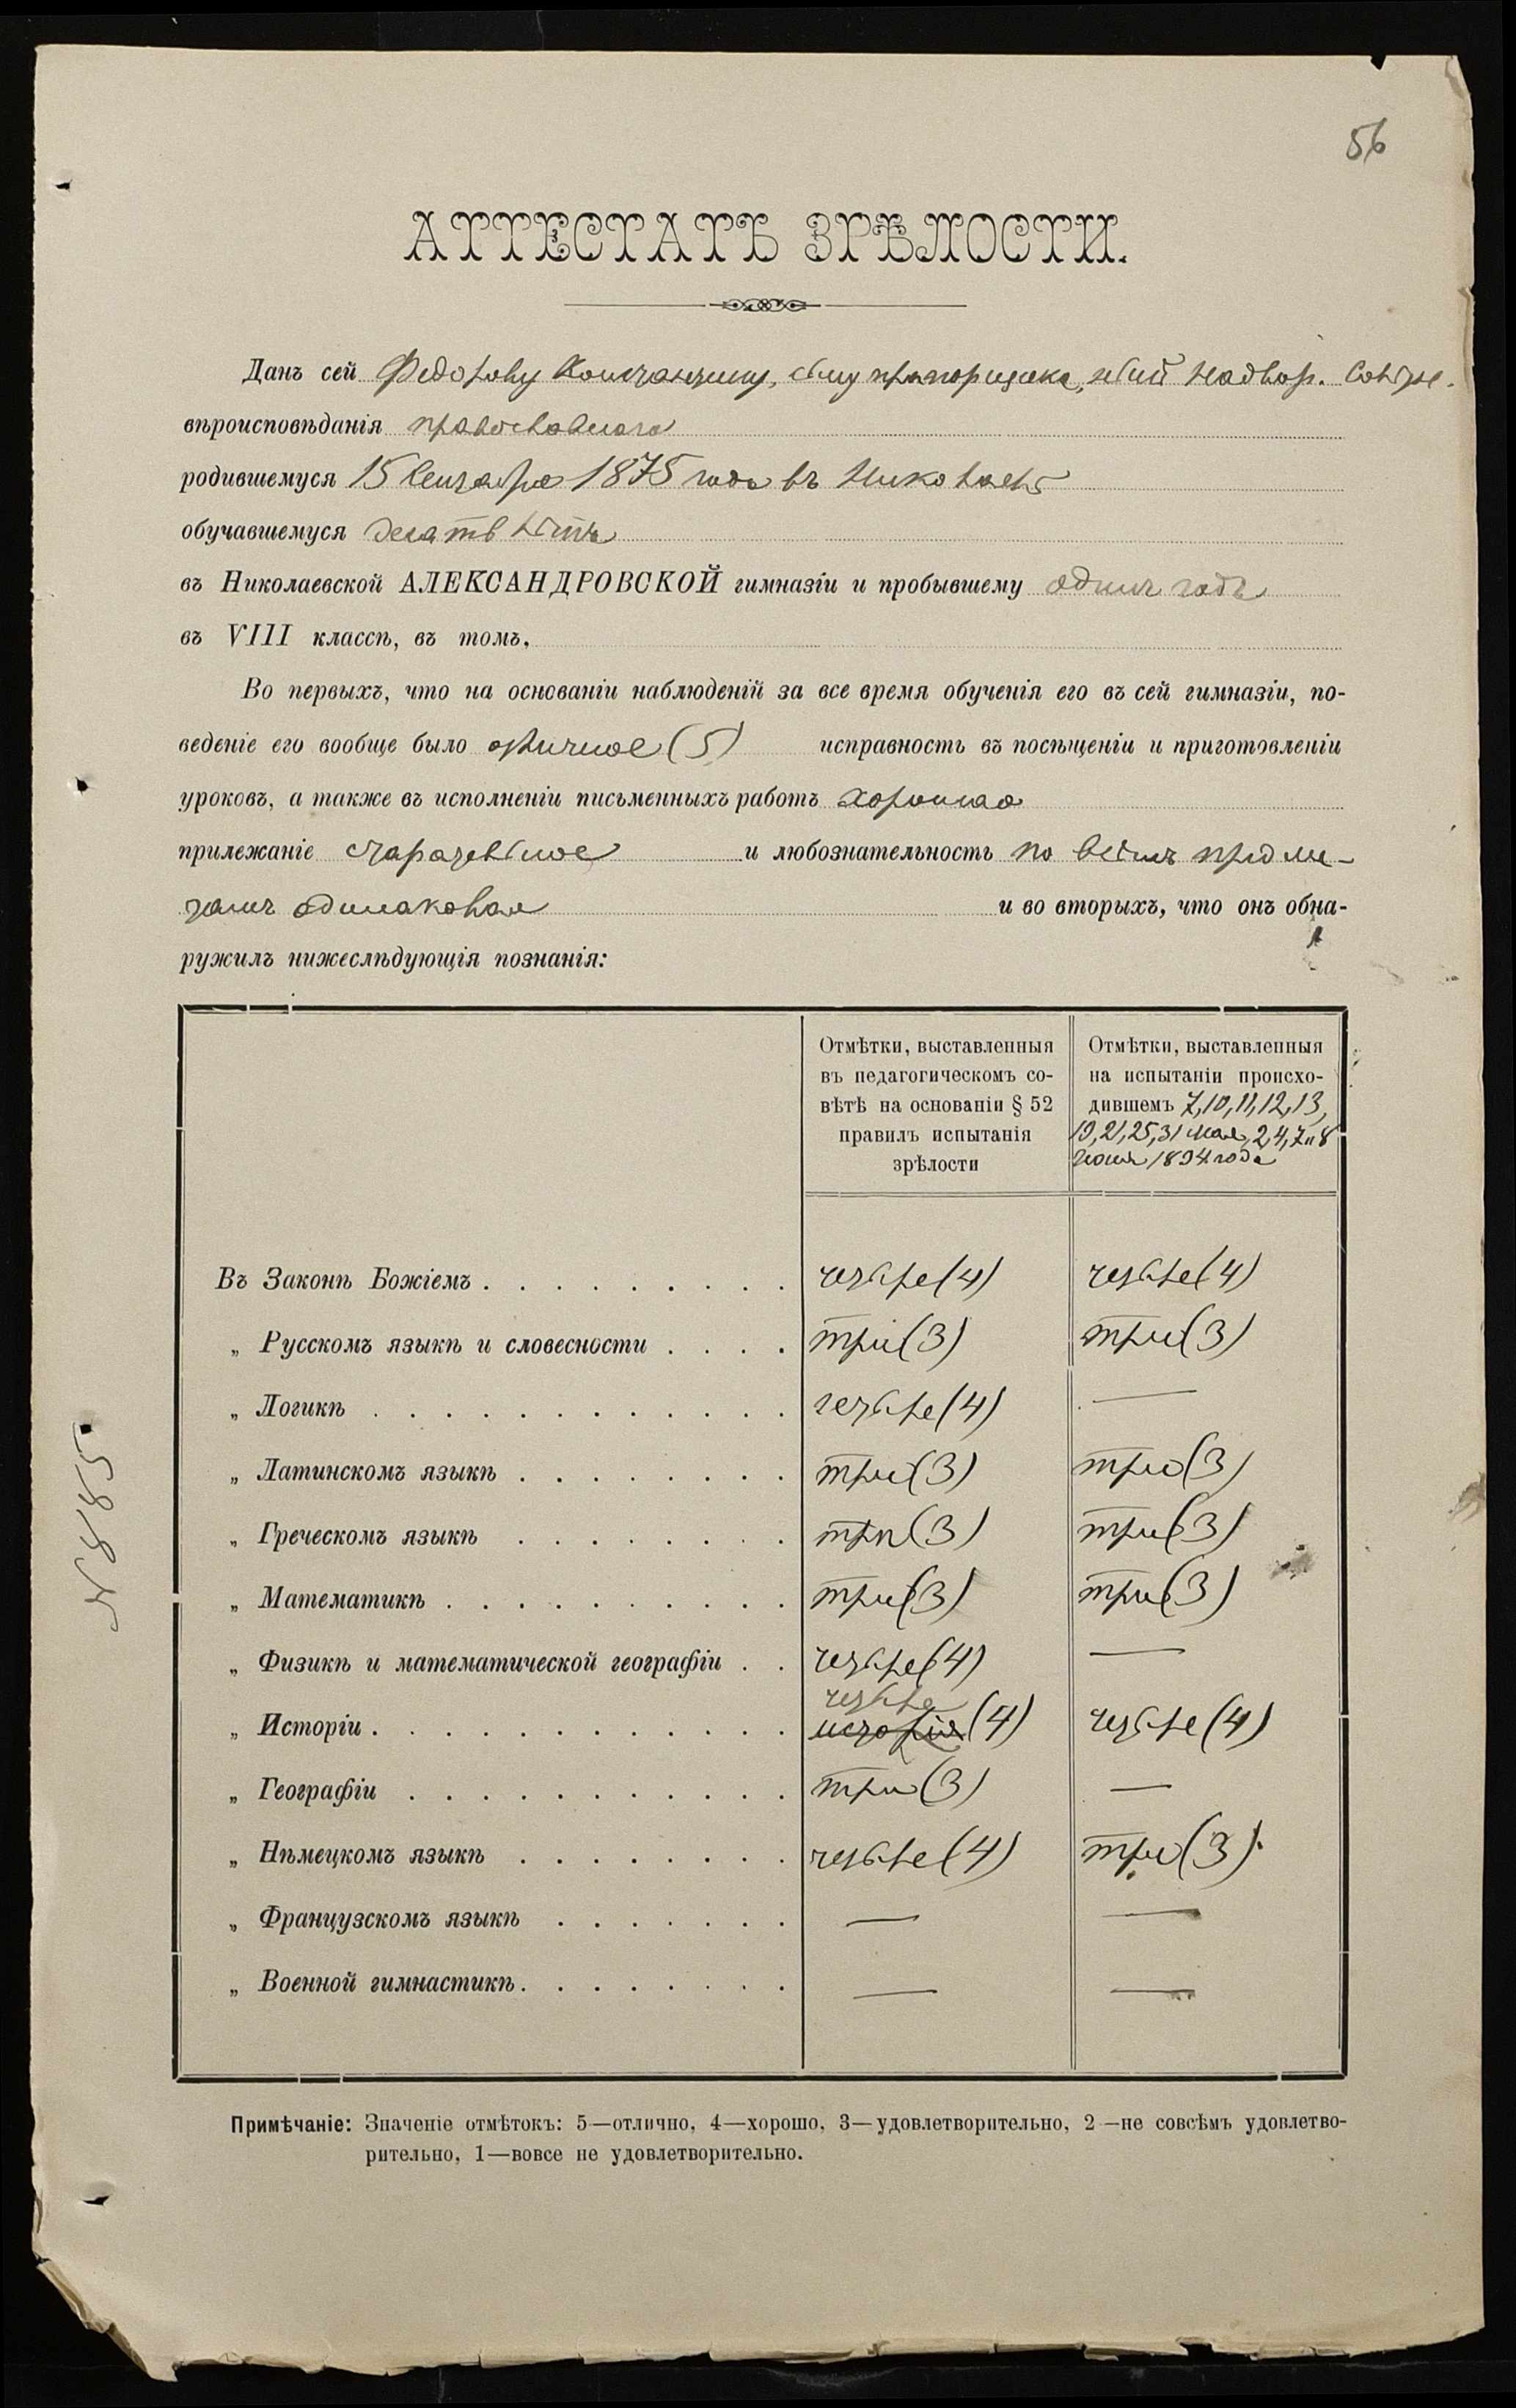 56
АТТЕСТАТЪ ЗРѢЛОСТИ.
Данъ сей Федорову Константину, сыну прапорщика, нынѣ Надвор. Совѣтн.
вѣроисповѣданія православнаго
родившемуся 15 Сентября 1875 года въ Николаевѣ
обучавшемуся десять лѣтъ
въ Николаевской АЛЕКСАНДРОВСКОЙ гимназіи и пробывшему одинъ годъ
въ VIII классѣ, въ томъ,
Во первыхъ, что на основаніи наблюденій за все время обученія его въ сей гимназіи, по-
веденіе его вообще было отличное (5) исправность въ посѣщеніи и приготовленіи
уроковъ, а также въ исполненіи письменныхъ работъ хорошая
прилежаніе старательное и любознательность по всѣмъ предме-
тамъ одинаковая и во вторыхъ, что онъ обна-
ружилъ нижеслѣдующія познанія:
Отмѣтки, выставленныя
въ педагогическомъ со-
вѣтѣ на основаніи § 52
правилъ испытанія
зрѣлости
Отмѣтки, выставленныя
на испытаніи происхо-
дившемъ 7, 10, 11, 12, 13,
19, 21, 25, 31 Мая, 2, 4, 7 и 8
Іюня 1894 года
Въ Законѣ Божіемъ . . . . . . . . . четыре (4) четыре (4)
„ Русскомъ языкѣ и словесности . . . . три (3) три (3)
„ Логикѣ . . . . . . . . . . . . четыре (4) —
„ Латинскомъ языкѣ . . . . . . . . три (3) три (3)
„ Греческомъ языкѣ . . . . . . . . три (3) три (3)
„ Математикѣ . . . . . . . . . . три (3) три (3)
„ Физикѣ и математической географіи . . четыре (4) —
четыре
„ Исторіи . . . . . . . . . . . . исторія (4) четыре (4)
„ Географіи . . . . . . . . . . . три (3) —
„ Нѣмецкомъ языкѣ . . . . . . . . четыре (4) три (3)
„ Французскомъ языкѣ . . . . . . . — —
„ Военной гимнастикѣ . . . . . . . . — —
№ 885
Примѣчаніе: Значеніе отмѣтокъ: 5—отлично, 4—хорошо, 3—удовлетворительно, 2—не совсѣмъ удовлетво-
рительно, 1—вовсе не удовлетворительно.